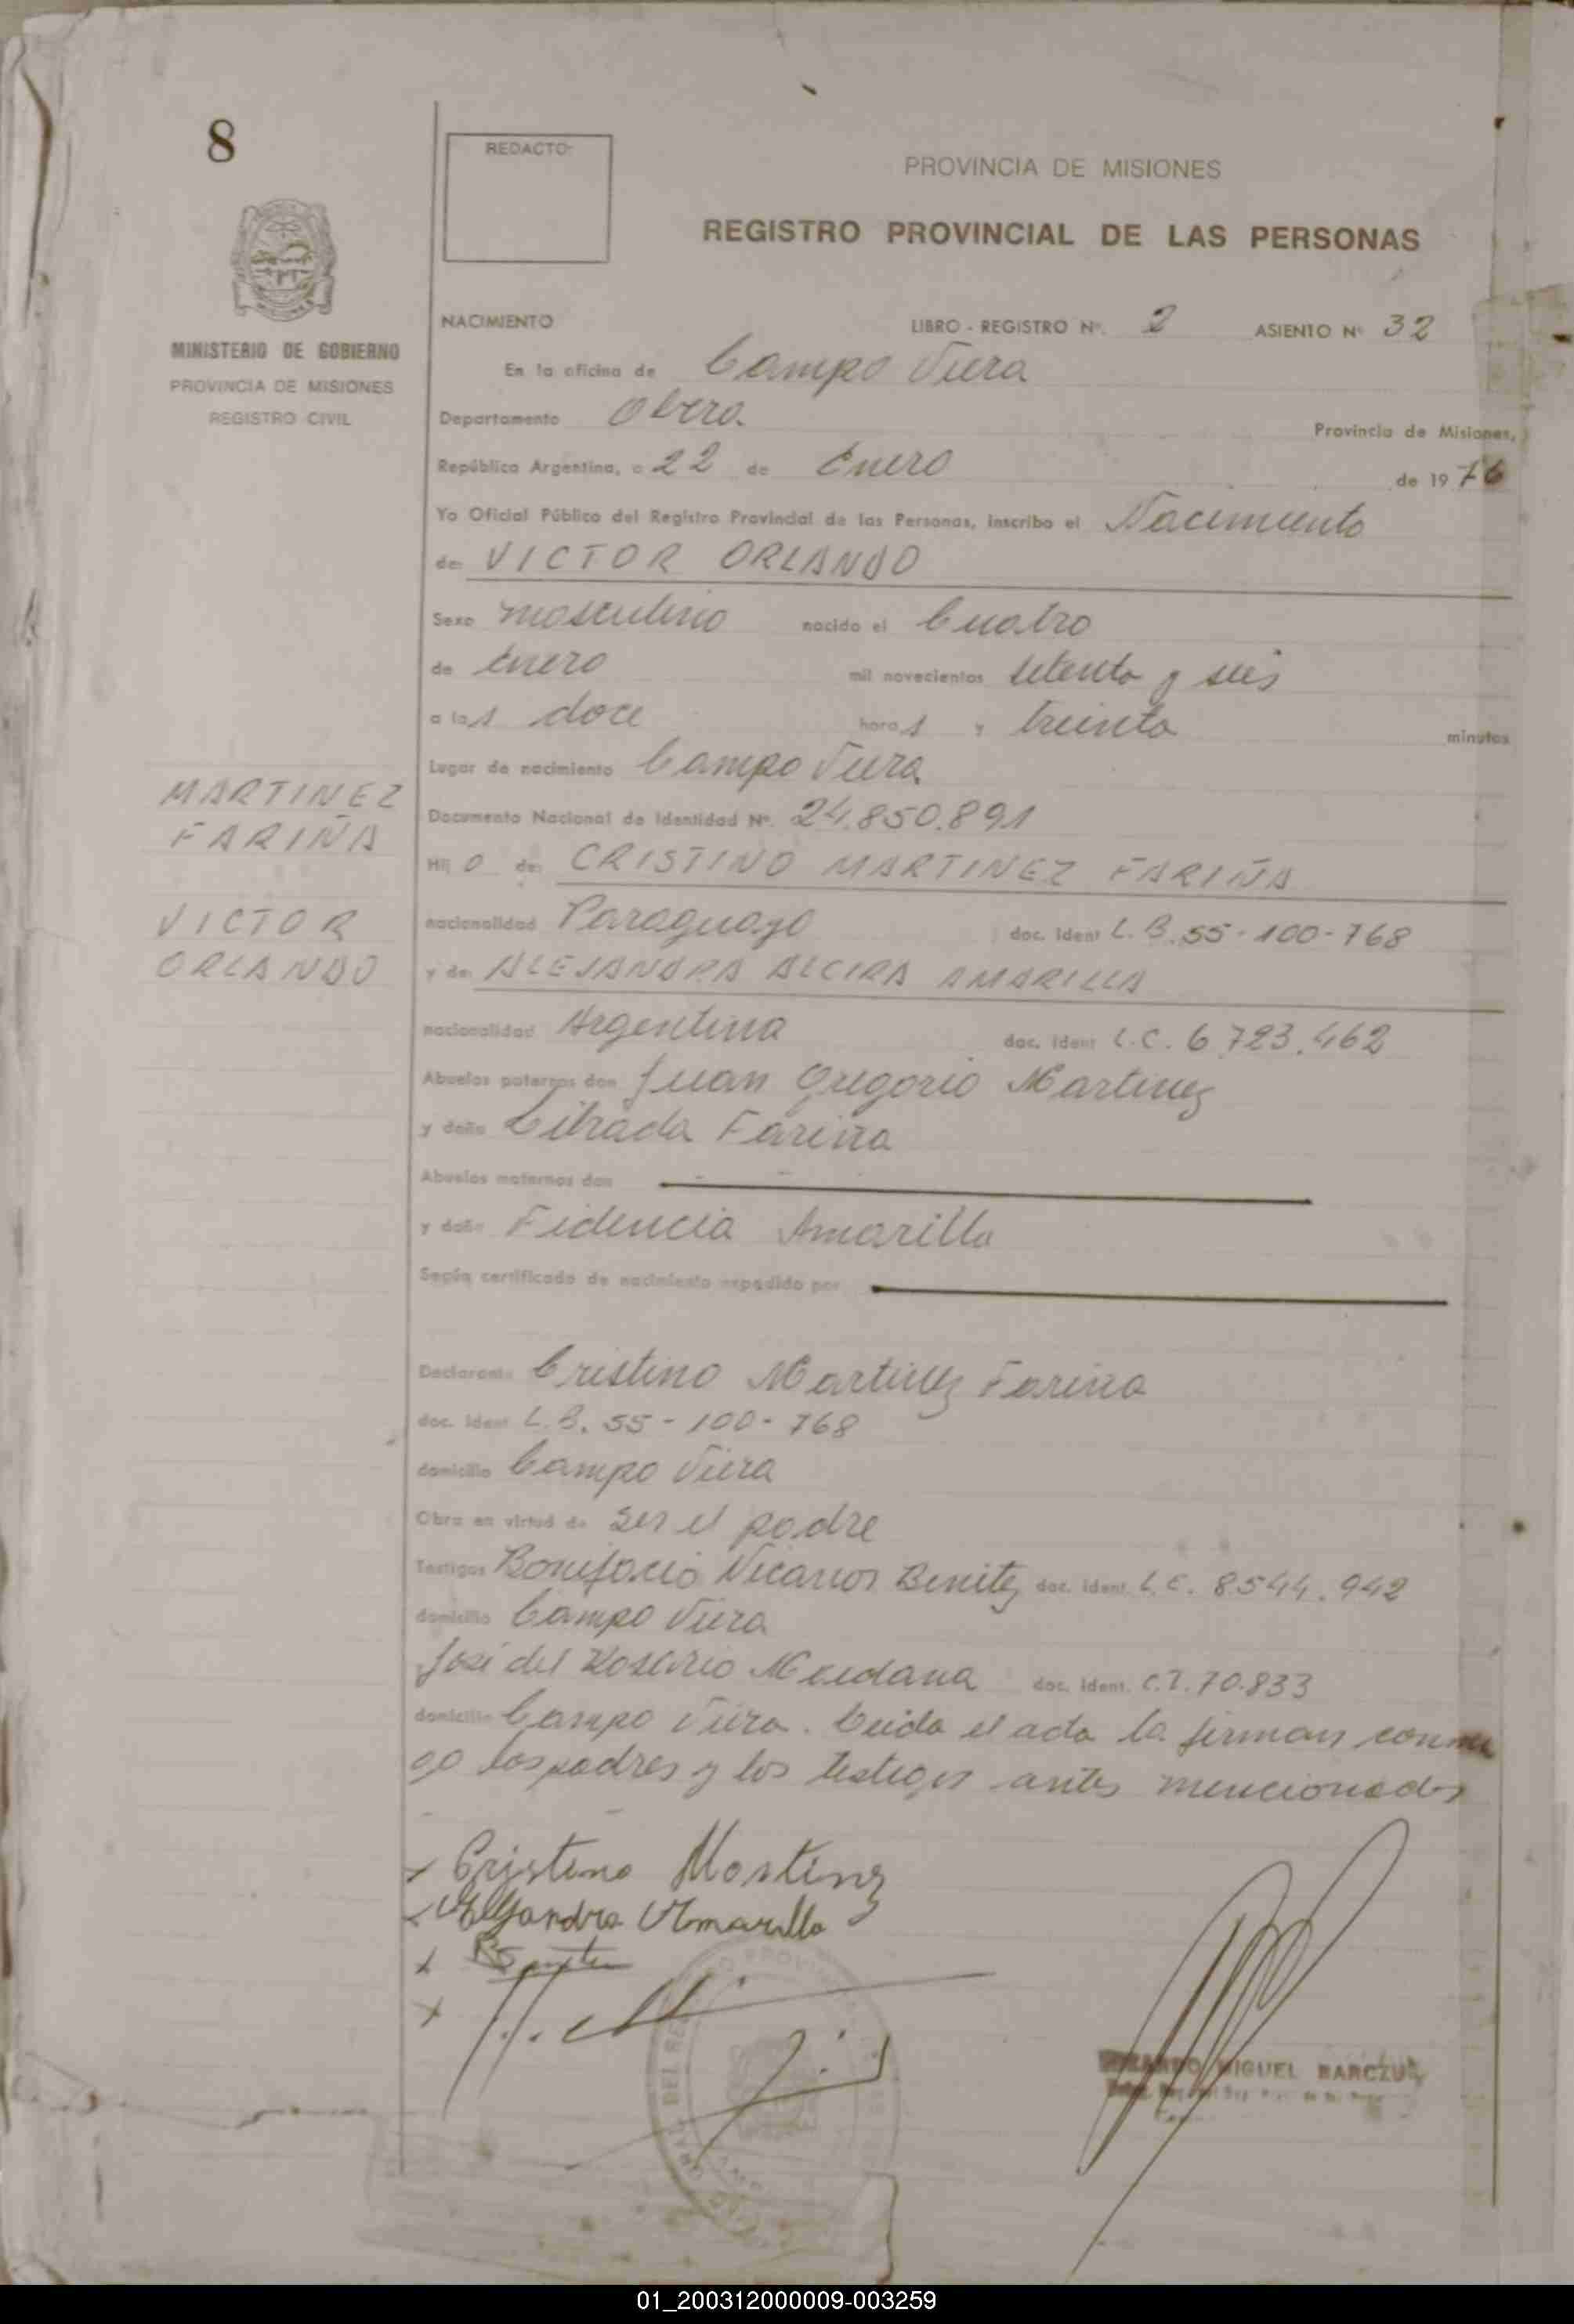 8
REDACTO:
PROVINCIA DE MISIONES
REGISTRO PROVINCIAL DE LAS PERSONAS
MINISTERIO DE GOBIERNO
PROVINCIA DE MISIONES
REGISTRO CIVIL
NACIMIENTO LIBRO - REGISTRO Nº. 2 ASIENTO Nº 32
En la oficina de Campo Viera
Departamento Oberá. Provincia de Misiones,
República Argentina, a 22 de Enero de 1976
Yo Oficial Público del Registro Provincial de las Personas, inscribo el Nacimiento
de: VICTOR ORLANDO
Sexo masculino nacido el Cuatro
de Enero mil novecientos setenta y seis
a las doce horas y treinta minutos
Lugar de nacimiento Campo Viera
Documento Nacional de Identidad Nº. 24.850.891
MARTINEZ
FARIÑA
VICTOR
ORLANDO
Hijo de: CRISTINO MARTINEZ FARIÑA
nacionalidad Paraguayo doc. Ident L. B. 55-100-768
y de: ALEJANDRA ALCIRA AMARILLA
nacionalidad Argentina doc. Ident L.C. 6.723.462
Abuelos paternos don Juan Gregorio Martinez
y doña Librada Fariña
Abuelos maternos don
y doña Fidencia Amarilla
Según certificado de nacimiento expedido por
Declarante Cristino Martinez Fariña
doc. Ident L. B. 55-100-768
domicilio Campo Viera
Obra en virtud de ser el padre
Testigos Bonifacio Nicanor Benitez doc. Ident. L.E. 8544.942
domicilio Campo Viera
José del Rosario doc. Ident. C.I. 70.833
domicilio Campo Viera. Leida el acta la firman conmi
go los padres y los testigos antes mencionados
Cristino Martinez
Alejandra Amarilla
MIGUEL BARCZUK
01_200312000009-003259